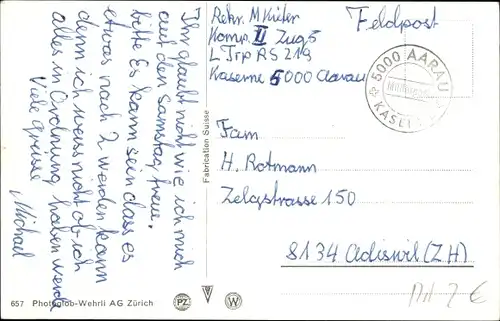 Ihr glaubt nicht wie ich mich
auf den Samstag freue.
Bitte Es kann sein dass es
etwas nach 2 werden kann
denn ich weiss nicht ob ich
alles in Ordnung haben werde
Viele Grüsse
Michael
Rekr. M Küfer
Komp. II Zug 5
L Trp RS 219
Kaserne 5000 Aarau
Feldpost
5000 AARAU
KASERNE
Fam
H. Rotmann
Zelgstrasse 150
8134 Adliswil (ZH)
Fabrication Suisse
657 Photoglob-Wehrli AG Zürich
PZ
W